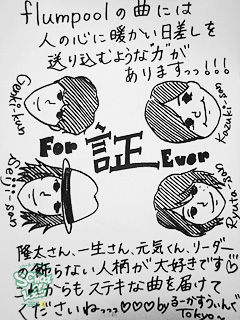 flumpoolの曲には
人の心に暖かい日差しを
送り込むような"力"が
ありますっっ!!!
Genki-kun
Kazuki-san
For 証 Ever
Seiji-san
Ryuta-san
隆太さん、一生さん、元気くん、リーダー
の飾らない人柄が大好きです♡
これからもステキな曲を届けて
くださいねっっ♡♡♡ by るーかすうぃんど
Tokyo~